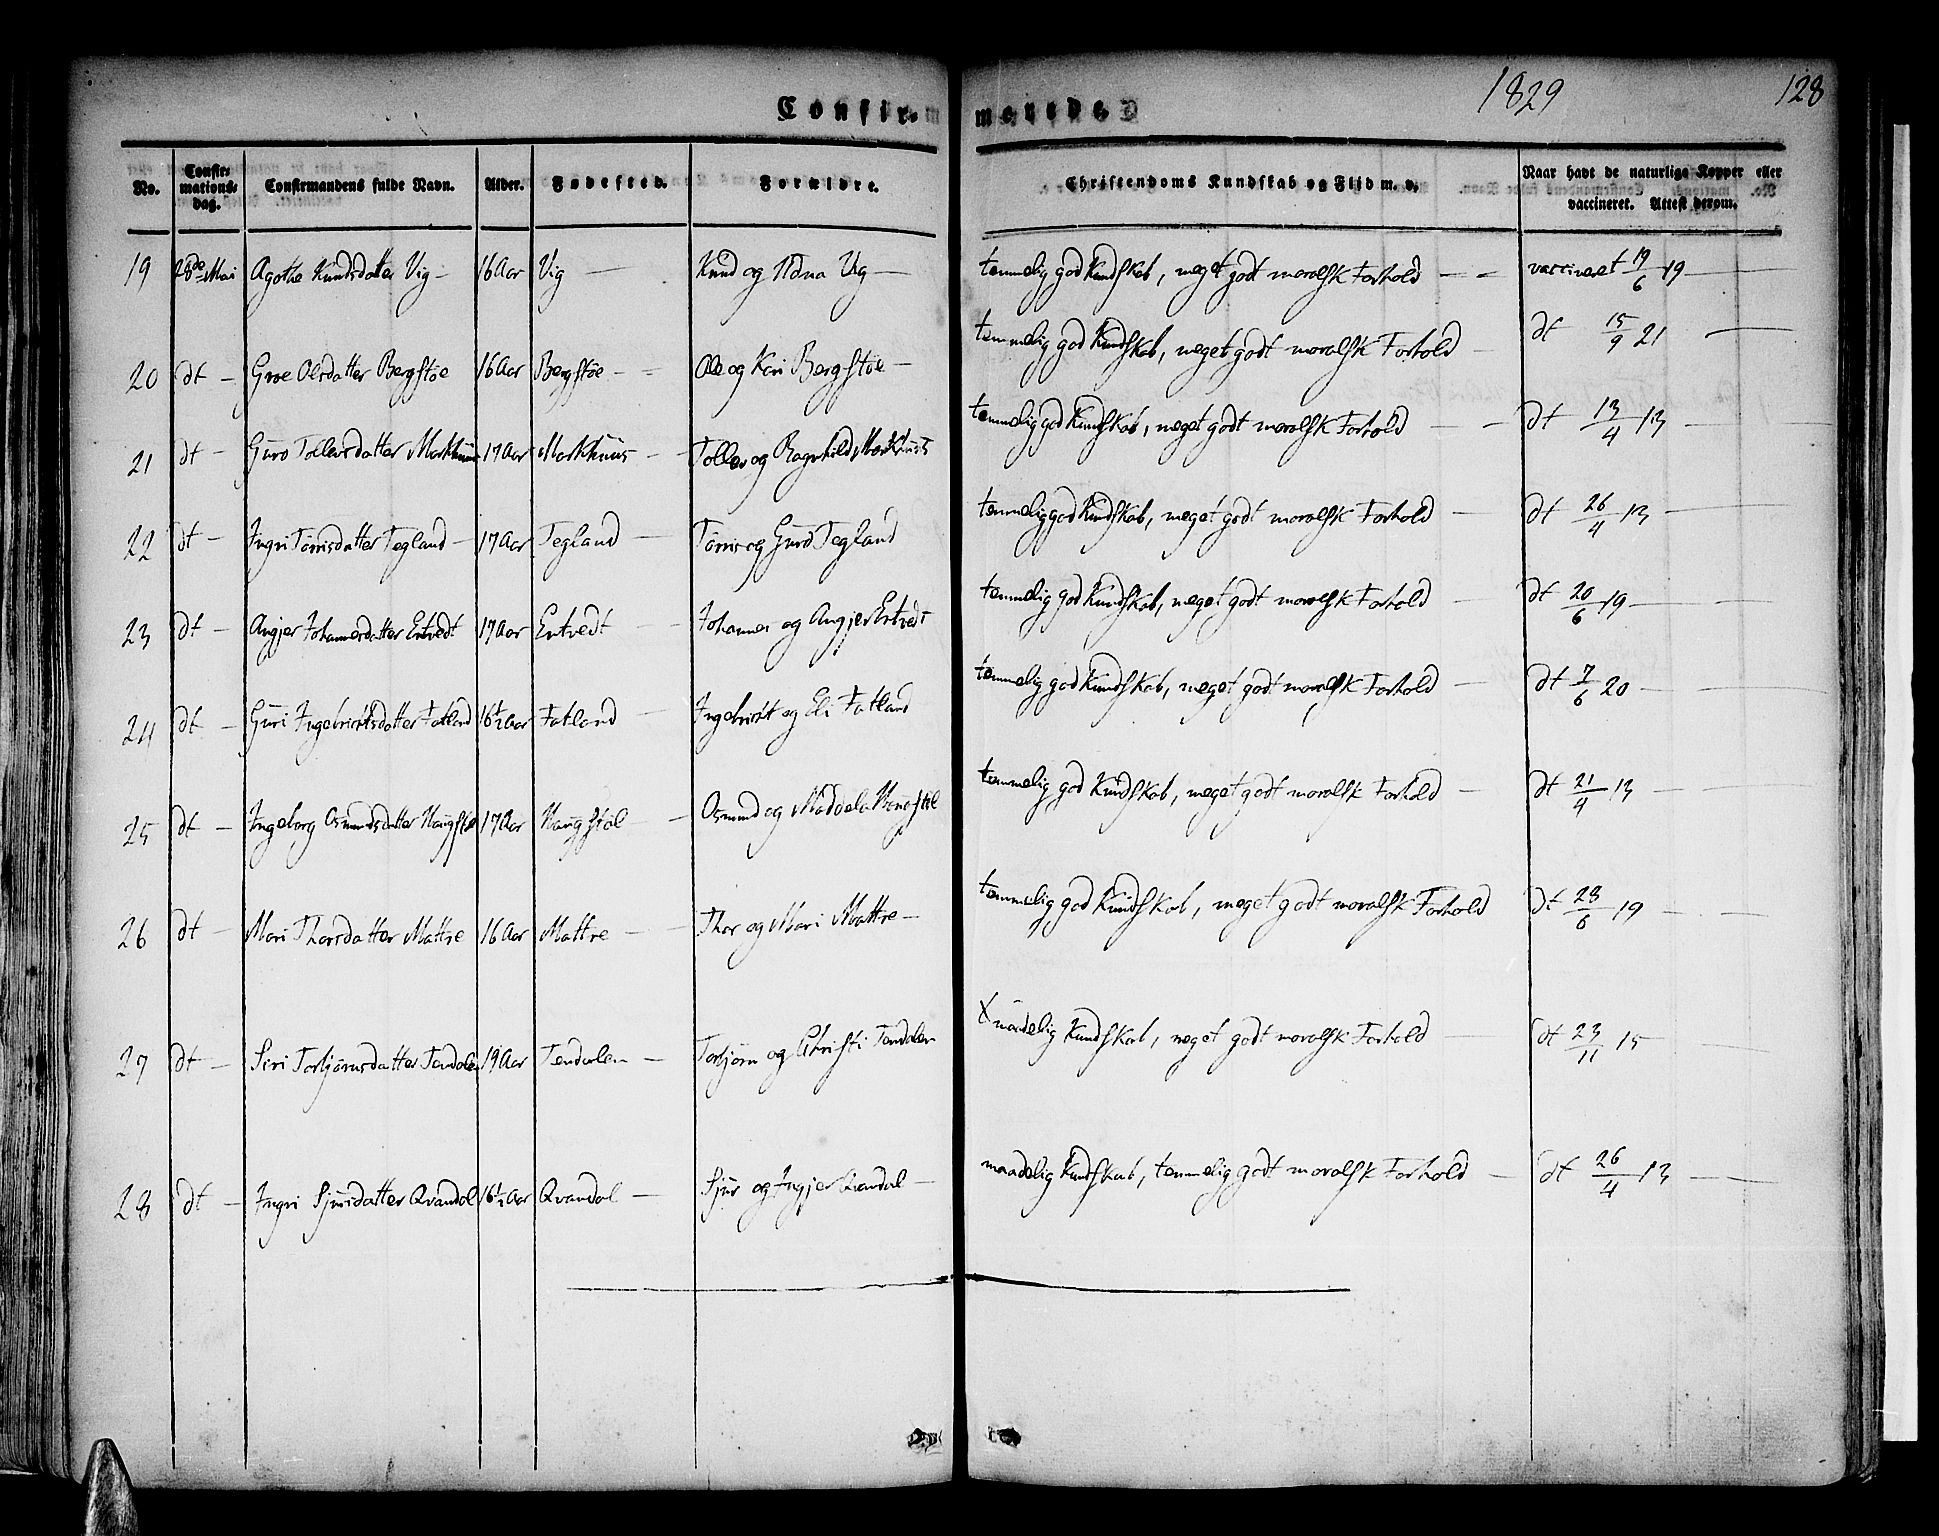 1829 128
Confir- mende.
No. Confir-mations-dag. Confirmandens fulde Navn. Alder. Fødested. Forældre. Christendoms Kundskab og Flid m. v. Naar havt de naturlige Kopper eller vaccineret. Attest derom.
19 28de Mai Agothe Knudsdatter Vig 16 Aar Vig Knud og Udna Vig temmelig god Kundskab, meget godt moralsk Forhold vaccineret 19/6 19
20 dt Groe Olsdatter Bergstøe 16 Aar Bergstøe Ole og Kari Bergstøe temmelig god Kundskab, meget godt moralsk Forhold dt 15/9 21
21 dt Guro Tollevsdatter Markhuus 17 Aar Markhuus Tollev og Ragnhild Markhuus temmelig god Kundskab, meget godt moralsk Forhold dt 13/4 13
22 dt Ingri Torrisdatter Tegland 17 Aar Tegland Torris og Guro Tegland temmelig god Kundskab, meget godt moralsk Forhold dt 26/4 13
23 dt Angjer Johannesdatter Entvedt 17 Aar Entvedt Johannes og Angjer Entvedt temmelig god Kundskab, meget godt moralsk Forhold dt 20/6 19
24 dt Guri Ingebrictsdatter Fatland 16½ Aar Fatland Ingebrict og Eli Fatland temmelig god Kundskab, meget godt moralsk Forhold dt 7/6 20
25 dt Ingeborg Osmundsdatter Haugstøl 17 Aar Haugstøl Osmund og Maddela Haugstøl temmelig god Kundskab, meget godt moralsk Forhold dt 21/4 13
26 dt Mari Thorsdatter Mattre 16 Aar Mattre Thor og Mari Mattre temmelig god Kundskab, meget godt moralsk Forhold dt 28/6 19
27 dt Siri Torbjørnsdatter Tendalen 19 Aar Tendalen Torbjørn og Christi Tendalen maadelig Kundskab, meget godt moralsk Forhold dt 23/11 15
28 dt Ingri Sjursdatter Qvandal 16½ Aar Qvandal Sjur og Ingjer Qvandal maadelig Kundskab, temmelig godt moralsk Forhold dt 26/4 13